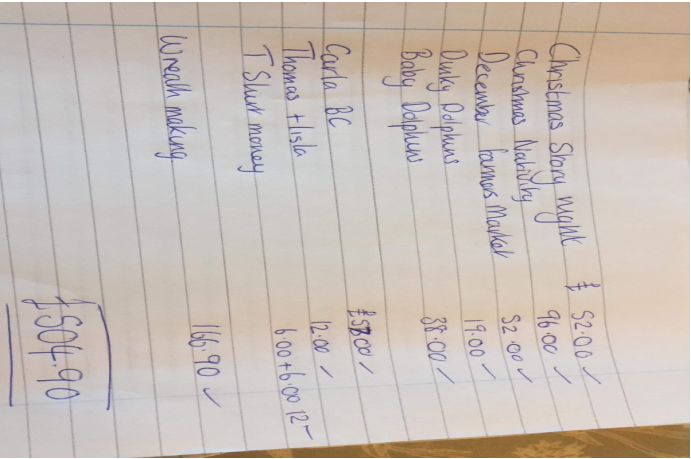 Christmas Story night £ 52.00 ✓
Christmas Nativity 96.00 ✓
December farmers Market 52.00 ✓
Dinky Dolphins 19.00 ✓
Baby Dolphins 38.00 ✓
Carla BC
Thomas + Isla 12.00 ✓
T Shirt money 6.00+6.00 12 ✓
Wreath making 166.90 ✓
£504.90